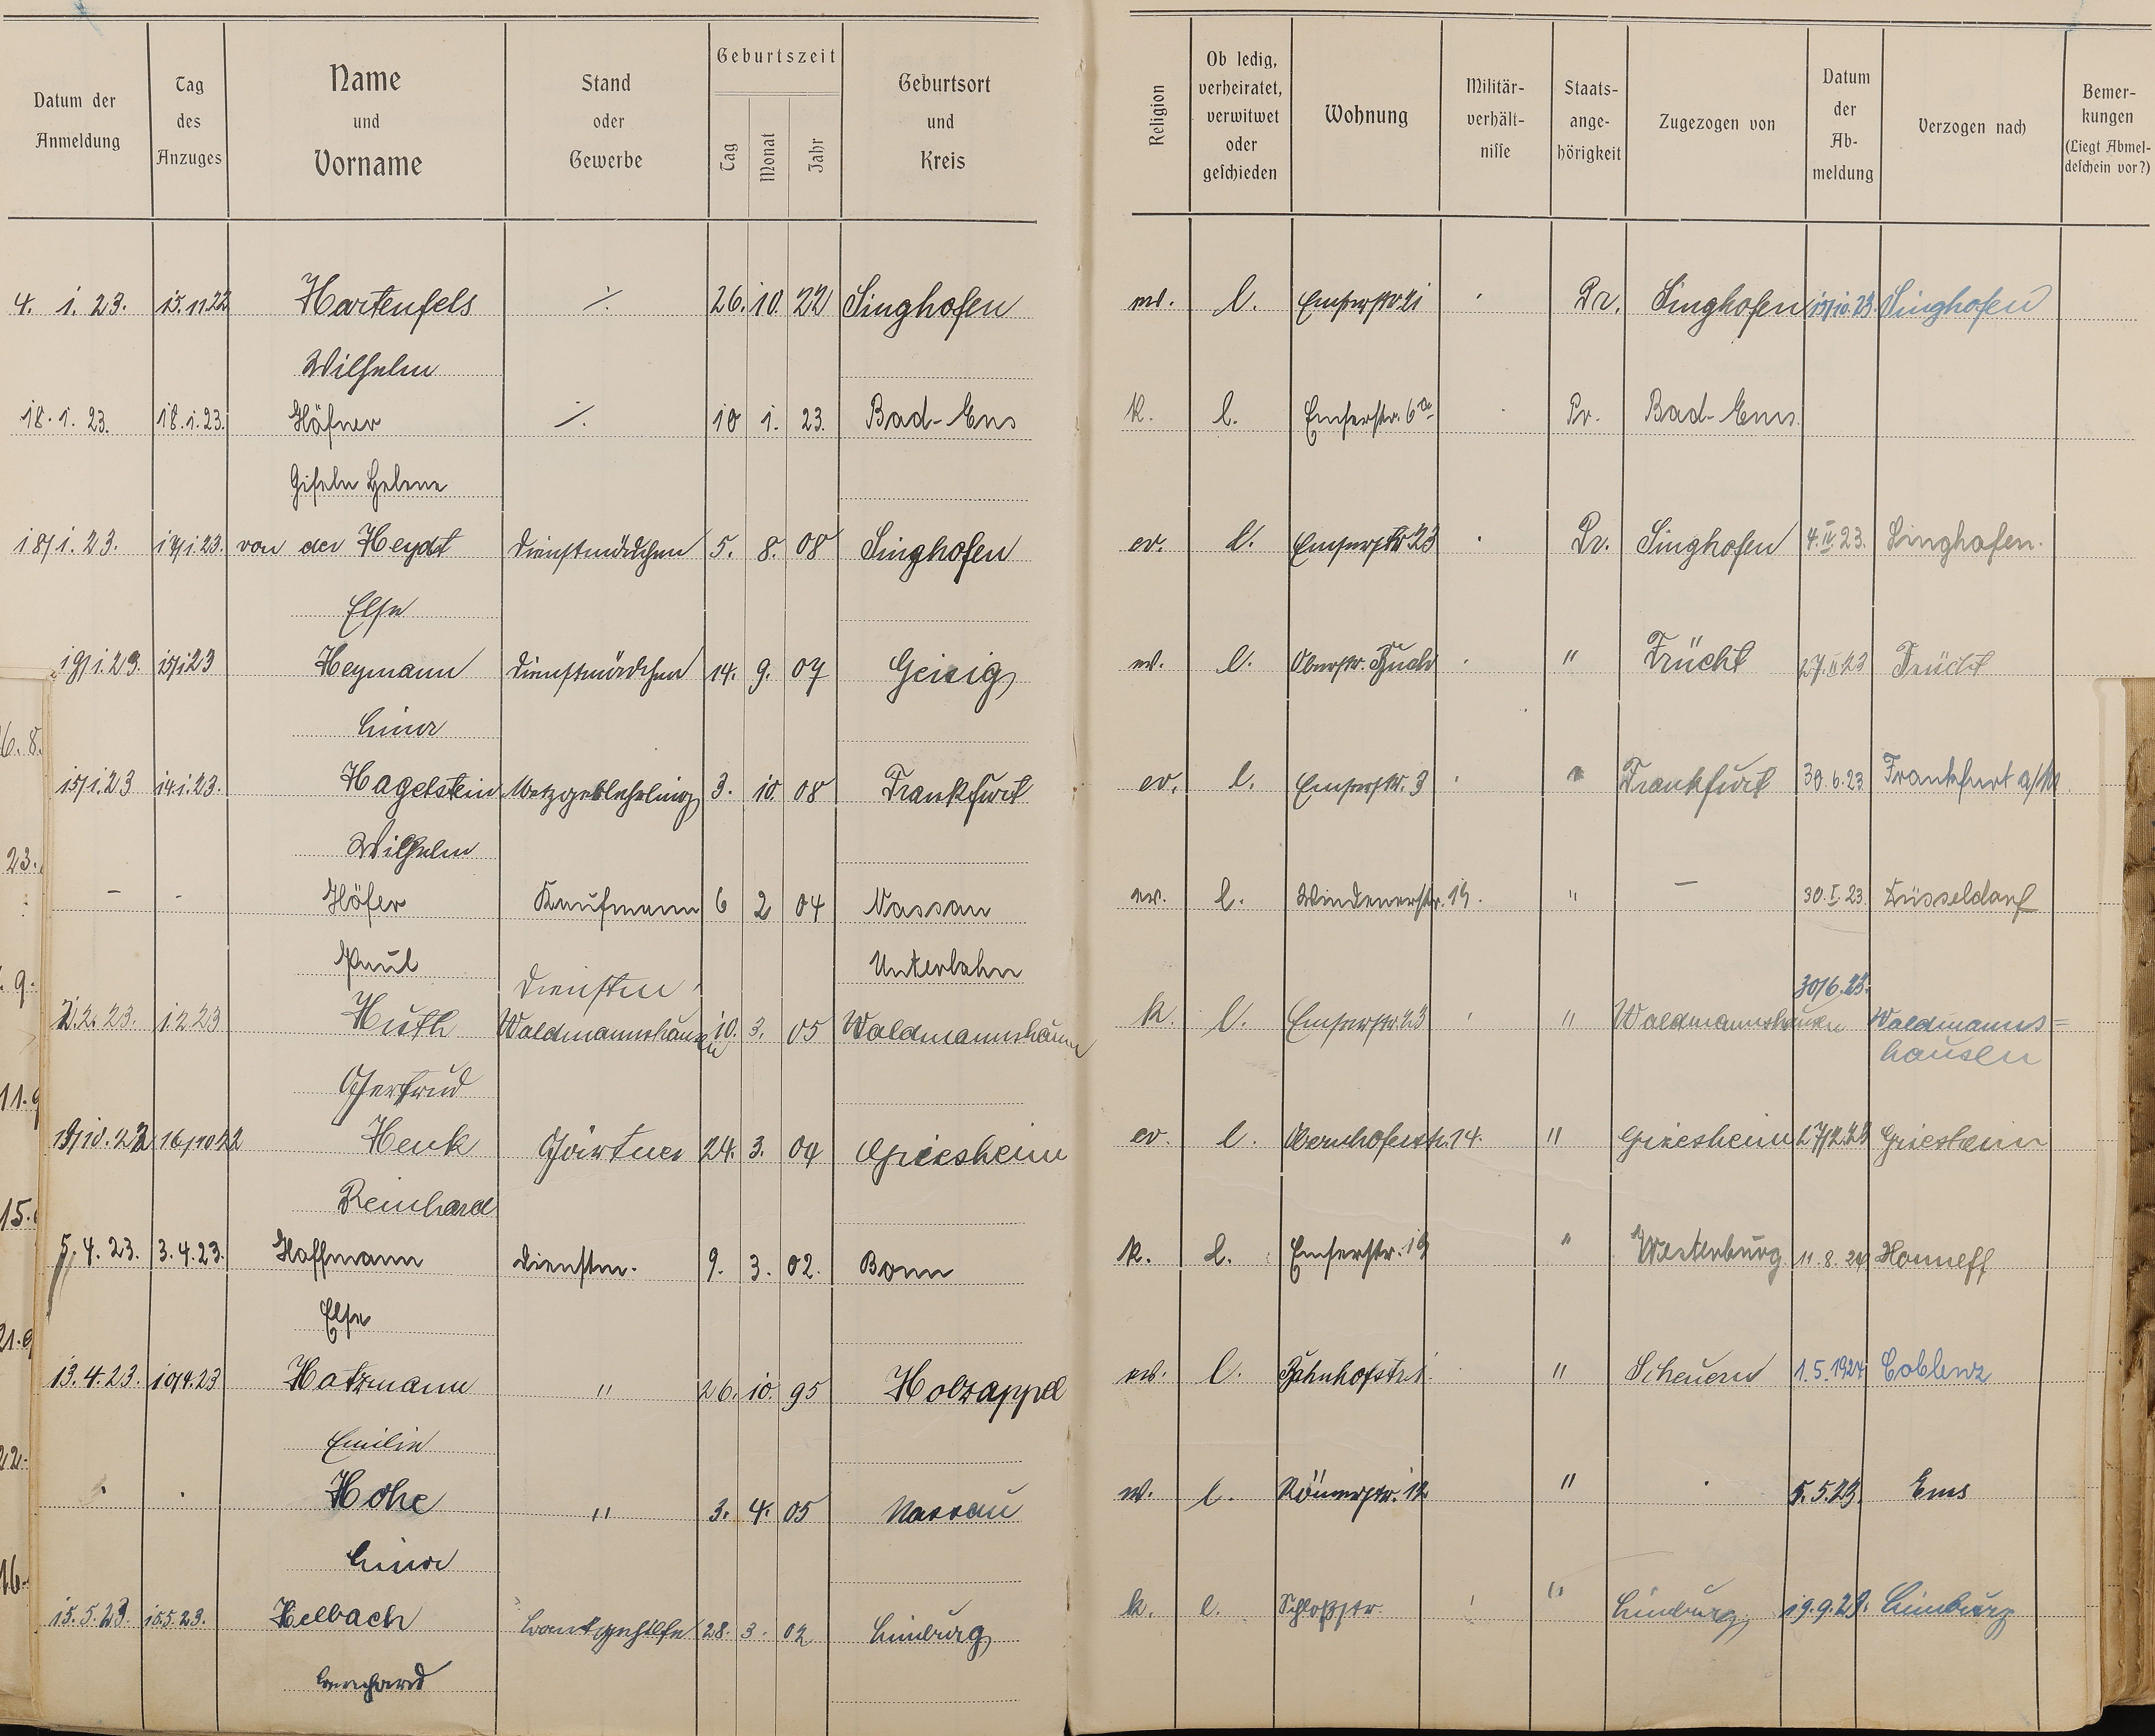 Datum der Anmeldung
Tag des Anzuges
Name und Vorname
Stand oder Gewerbe
Geburtszeit
Tag Monat Jahr
Geburtsort und Kreis
Religion
Ob ledig, verheiratet, verwitwet oder geschieden
Wohnung
Militär-verhält-nisse
Staats-ange-hörigkeit
Zugezogen von
Datum der Ab-meldung
Verzogen nach
Bemer-kungen (Liegt Abmel-deschein vor?)
4. 1. 23. 15.11.22 Hartenfels ·/. 26. 10. 22 Singhofen ev. l. Emserstr 21 Pr. Singhofen 15/10.23. Singhofen
Wilhelm
18. 1. 23. 18.1.23. Häfner ·/. 10 1. 23. Bad-Ems k. l. Emserstr. 6a Pr. Bad-Ems.
Gisela Helene
18/1. 23. von der Heydt Dienstmädchen 5. 8. 08 Singhofen ev. l. Emserstr 23 Pr. Singhofen 4.IV.23. Singhofen.
Else
19/1.23. 15/1 23 Heymann Dienstmädchen 14. 9. 07 Geisig ev. l. Oberstr. " Frücht 27.II 23 Frücht
Lina
15/1.23 14.1.23. Hagelstein Metzgerlehrling 3. 10. 08 Frankfurt ev. l. Emserstr. 3 " Frankfurt 30.6.23 Frankfurt a/M
Wilhelm
– - Höfer Kaufmann 6 2 04 Nassau ev. l. Windenerstr. 19. " – 30.I.23. Düsseldorf
Paul Unterlahn
Dienstm. 30/6.23.
2.2.23. 1.2.23 Huth Waldmannshausen 10. 3. 05 Waldmannshausen k. l. Emserstr. 23 " Waldmannshausen Waldmanns=
hausen
Gertrud
19/10.22 16/10 22 Henk Gärtner 24. 3. 04 Griesheim ev. l. Obernhoferstr. 14. " Griesheim 27/2.23 Griesheim
Reinhard
5. 4. 23. 3.4.23. Hoffmann Dienstm. 9. 3. 02. Bonn k. l. Emserstr. 19 " Westerburg 11.8.24 Honneff
Else
13.4.23. 10/4.23 Hatzmann " 26. 10. 95 Holzappel ev. l. Bahnhofstr 1. " Scheuern 1.5.1924 Coblenz
Emilie
Hohe " 3. 4. 05 Nassau ev. l. Römerstr. 12 " 5.5.23. Ems
Lina
15.5.23. 15.5.23. Helbach 28. 3. 02 Limburg k. l. Schloßstr. " Limburg 19.9.23. Limburg
6. 8.
23.
9.
11.9
15.
21.9
22.
16.